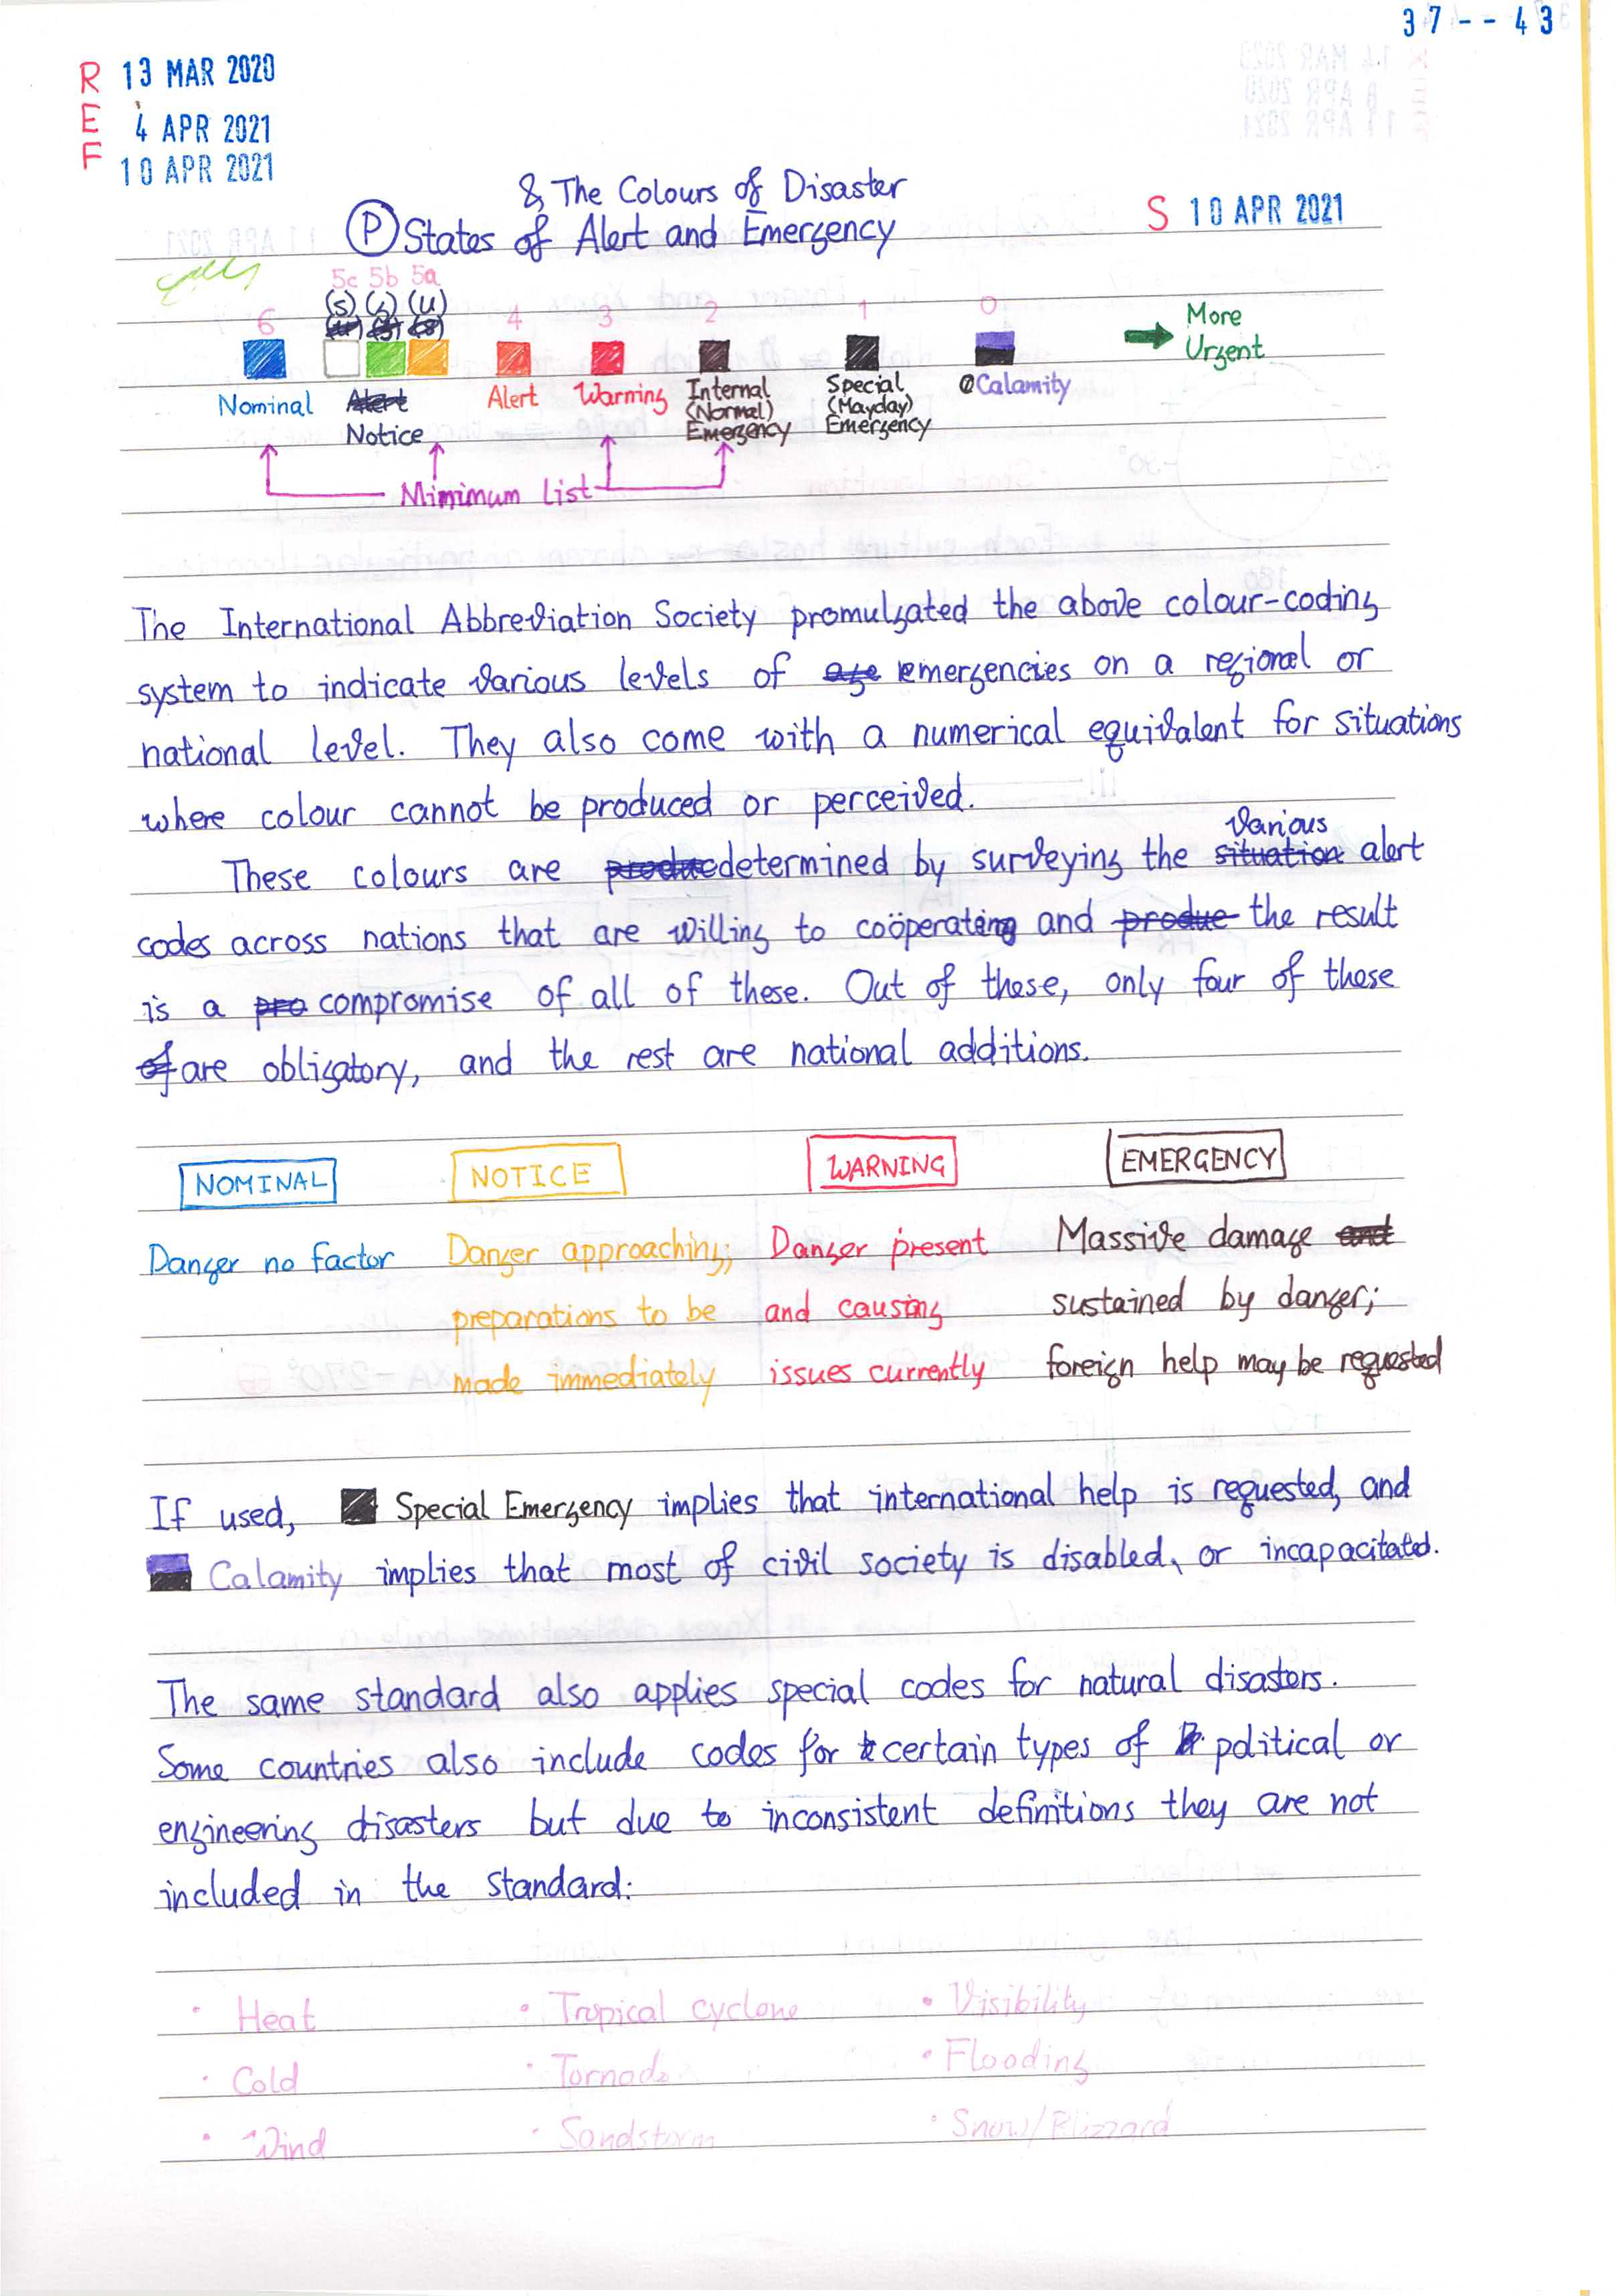 37--43
R 13 MAR 2020
E 4 APR 2021
F 10 APR 2021
& The Colours of Disaster
P States of Alert and Emergency
S 10 APR 2021
5c 5b 5a
(S) (S) (U)
6 4 3 2 1 0
More
Urgent
Nominal Alert Alert Warning Internal Special Calamity
Notice (Normal) (Mayday)
Emergency Emergency
Minimum list
The International Abbreviation Society promulgated the above colour-coding
system to indicate various levels of age emergencies on a regional or
national level. They also come with a numerical equivalent for situations
where colour cannot be produced or perceived.
various
These colours are produc determined by surveying the situation alert
codes across nations that are willing to coöperating and produe the result
is a pro compromise of all of these. Out of these, only four of these
of are obligatory, and the rest are national additions.
NOMINAL NOTICE WARNING EMERGENCY
Danger no factor Danger approaching; Danger present Massive damage and
preparations to be and causing sustained by danger;
made immediately issues currently foreign help may be requested
If used, Special Emergency implies that international help is requested, and
Calamity implies that most of civil society is disabled, or incapacitated.
The same standard also applies special codes for natural disasters.
Some countries also include codes for certain types of political or
engineering disasters but due to inconsistent definitions they are not
included in the standard:
• Heat • Tropical cyclone • Visibility
• Cold • Tornado • Flooding
• Wind • Sandstorm • Snow/Blizzard